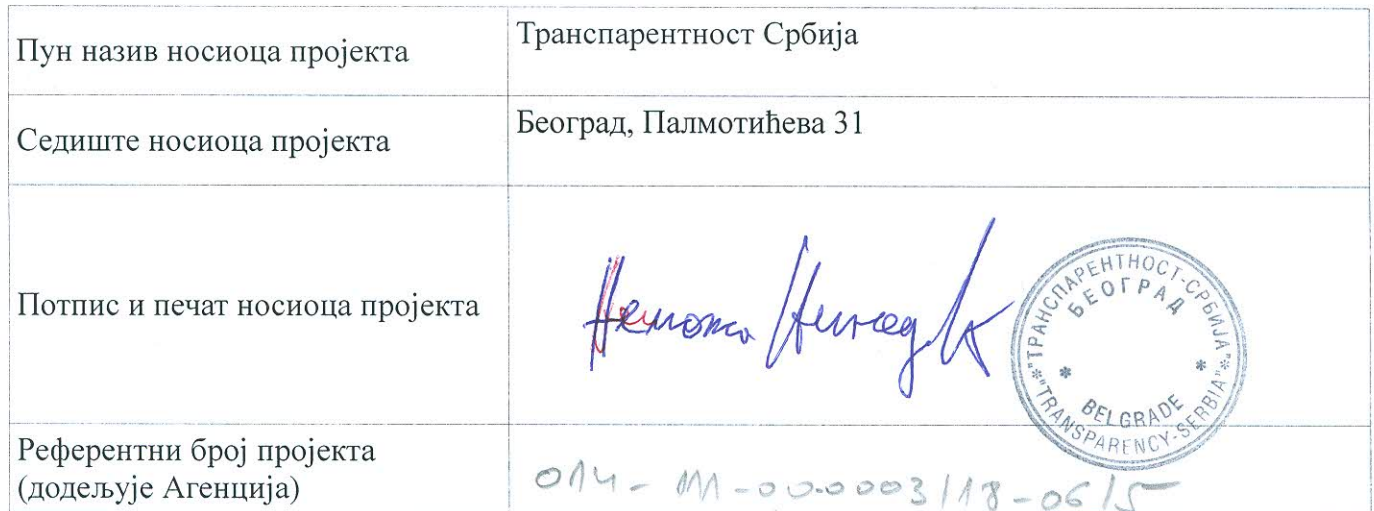 Пун назив носиоца пројекта
Транспарентност Србија
Седиште носиоца пројекта
Београд, Палмотићева 31
Потпис и печат носиоца пројекта
"ТРАНСПАРЕНТНОСТ-СРБИЈА"
БЕОГРАД
BELGRADE
"TRANSPARENCY-SERBIA"
Референтни број пројекта
(додељује Агенција)
014-111-00-0003/18-06/5